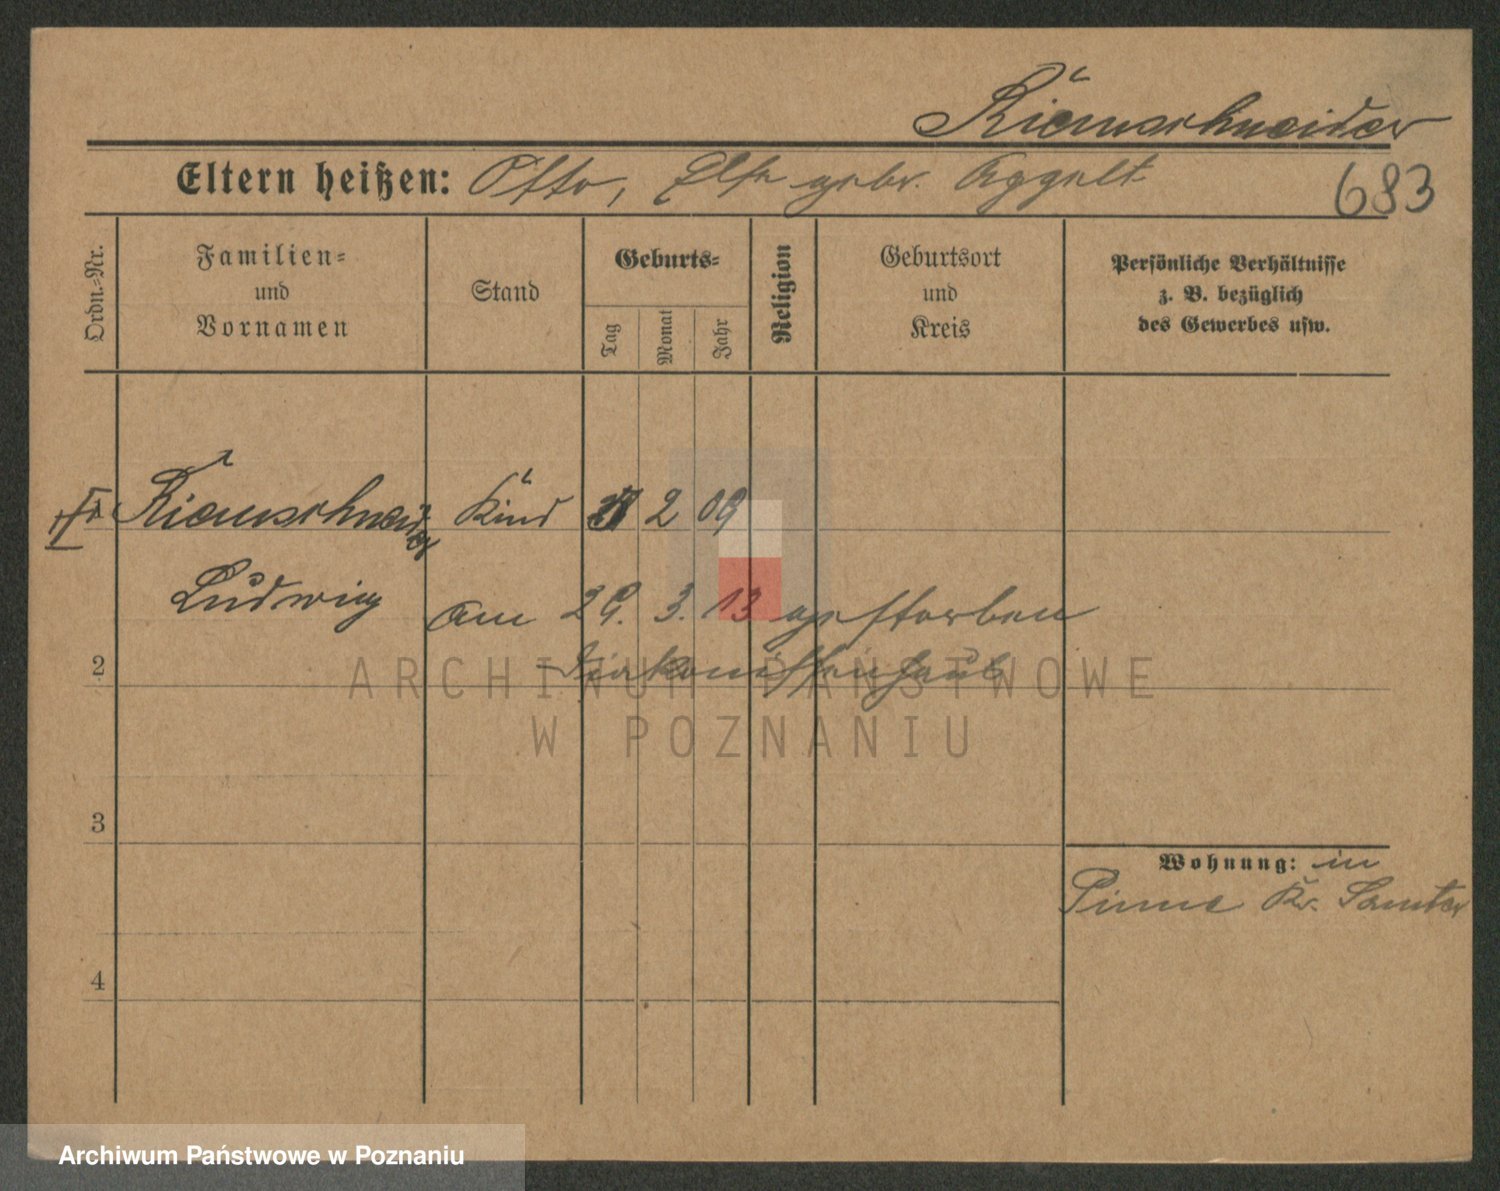 Riemschneider
Eltern heißen: Otto, Else gebr. Aggelt
683
Ordn.-Nr.
Familien-
und
Vornamen
Stand
Geburts-
Tag
Monat
Jahr
Religion
Geburtsort
und
Kreis
Persönliche Verhältnisse
z. B. bezüglich
des Gewerbes usw.
Riemschneider Kind 2 09
Ludwig am 29. 3. 13 gestorben
2 Diakonissenhaus
ARCHIWUM PAŃSTWOWE
W POZNANIU
3
Wohnung: in
Pinne Kr. Samter
4
Archiwum Państwowe w Poznaniu